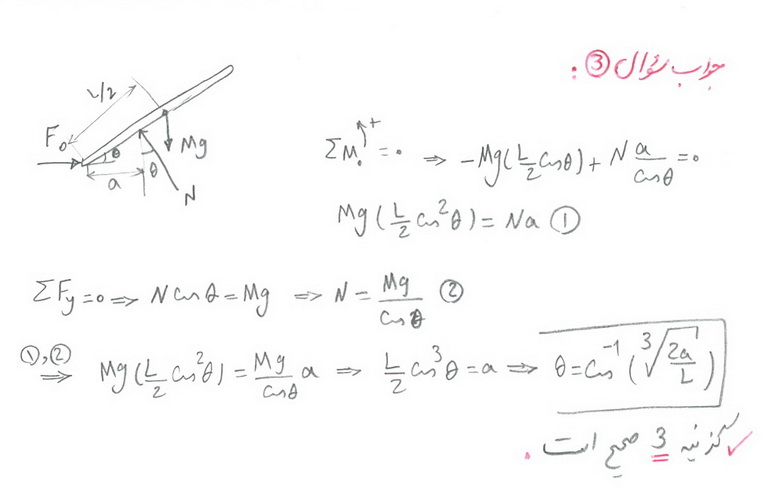 جواب سؤال ③ :
L/2
F₀
Mg
θ
a
θ
N
ΣM₀⁺ = 0 ⇒ -Mg(L/2 cosθ) + N a/cosθ = 0
Mg(L/2 cos²θ) = Na ①
ΣFy = 0 ⇒ N cosθ = Mg ⇒ N = Mg/cosθ ②
①,② ⇒ Mg(L/2 cos²θ) = Mg/cosθ a ⇒ L/2 cos³θ = a ⇒ θ = cos⁻¹(∛(2a/L))
گزنیه 3 صحیح است .